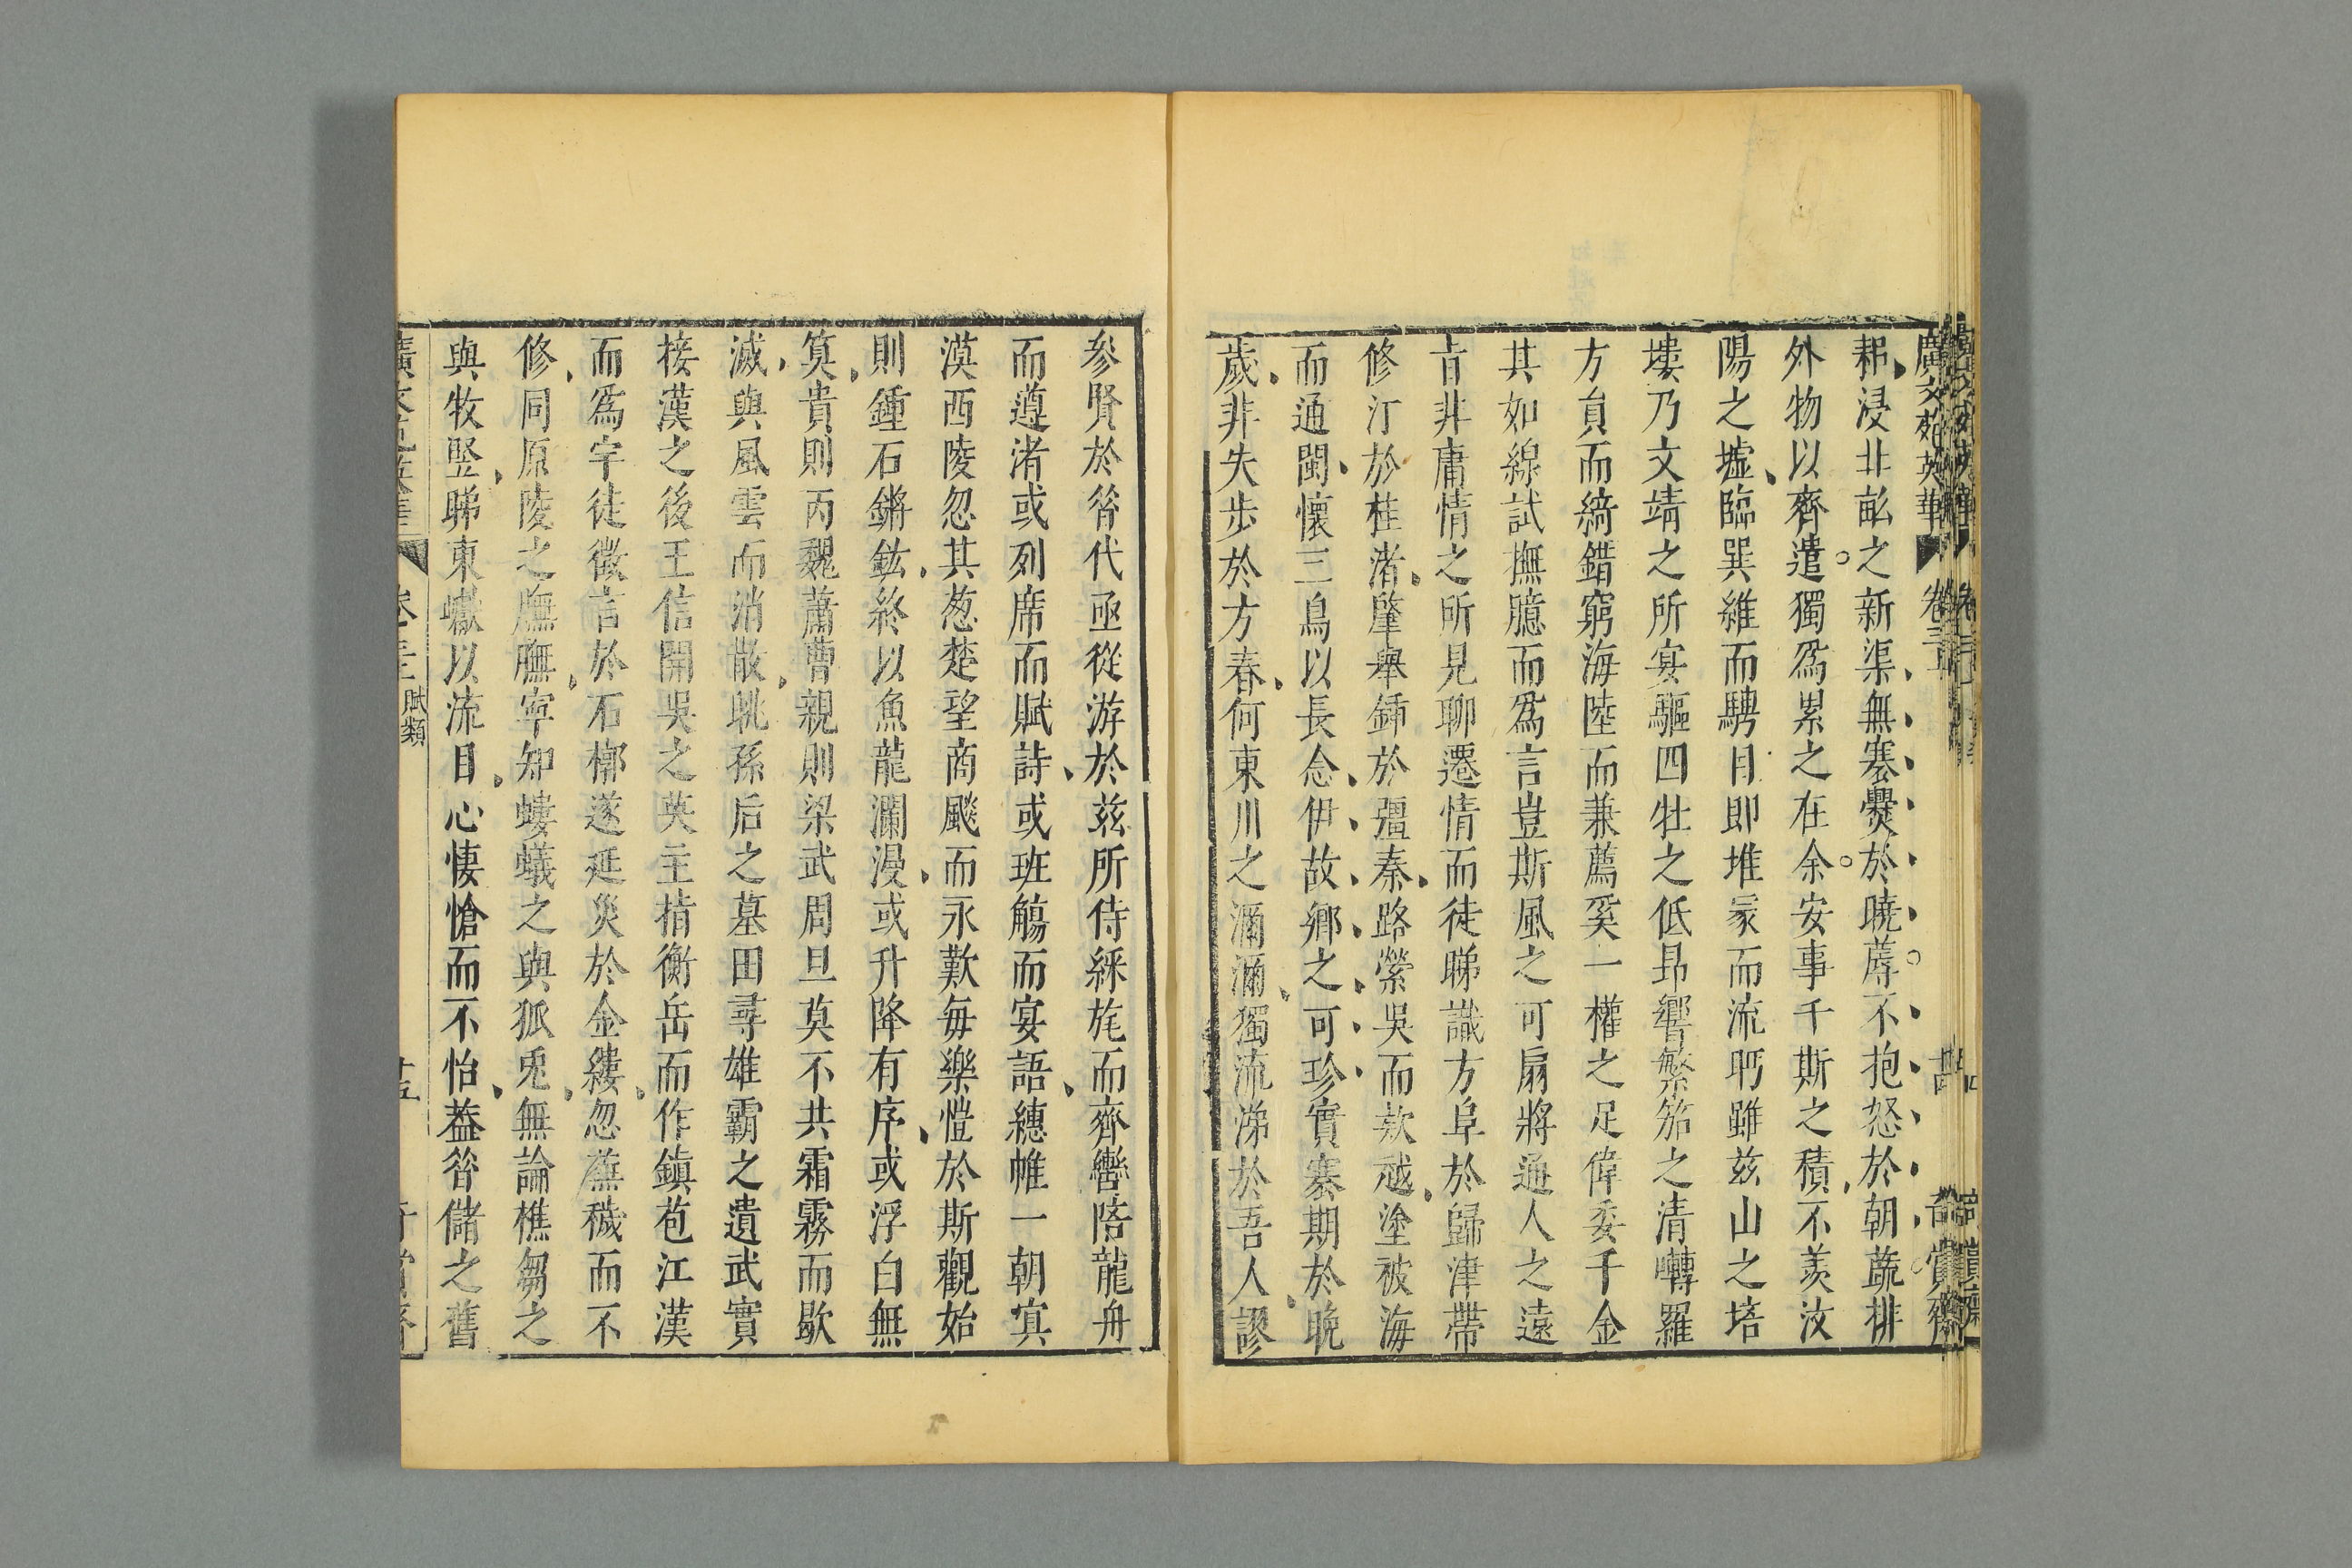 廣文苑英華 卷三 十四 奇賞齋
耜浸北畝之新渠無褰爨於曉蓐不抱怒於朝蔬排
外物以齊遣獨爲累之在余安事千斯之積不羨汶
陽之墟臨巽維而騁目即堆冢而流眄雖茲山之培
塿乃文靖之所宴驅四牡之低昻響繁笳之清囀羅
方員而綺錯窮海陸而兼薦奚一權之足偉委千金
其如線試撫臆而爲言豈斯風之可扇將通人之遠
旨非庸情之所見聊遷情而徒睇識方阜於歸津帶
修汀於桂渚肇舉鍤於彊秦路縈吳而款越塗被海
而通閩懷三鳥以長念伊故鄉之可珍實褰期於晚
歲非失步於方春何東川之瀰瀰獨流涕於吾人謬
參賢於昝代亟從游於茲所侍綵旄而齊轡陪龍舟
而遵渚或列席而賦詩或班觴而宴語繐帷一朝寘
漠西陵忽其葱楚望商飈而永歎每樂愷於斯觀始
則鍾石鏘鈜終以魚龍瀾漫或升降有序或浮白無
筭貴則丙魏蕭曹親則梁武周旦莫不共霜霧而歇
滅與風雲而消散眺孫后之墓田尋雄霸之遺武實
接漢之後王信開吳之英主指衡岳而作鎮苞江漢
而爲宇徒徵言於石槨遂延災於金縷忽蕪穢而不
修同原陵之膴膴寧知螻蟻之與狐兎無論樵芻之
與牧竪睇東巘以流目心悽愴而不怡葢昝儲之舊
卷三 賦類 十五